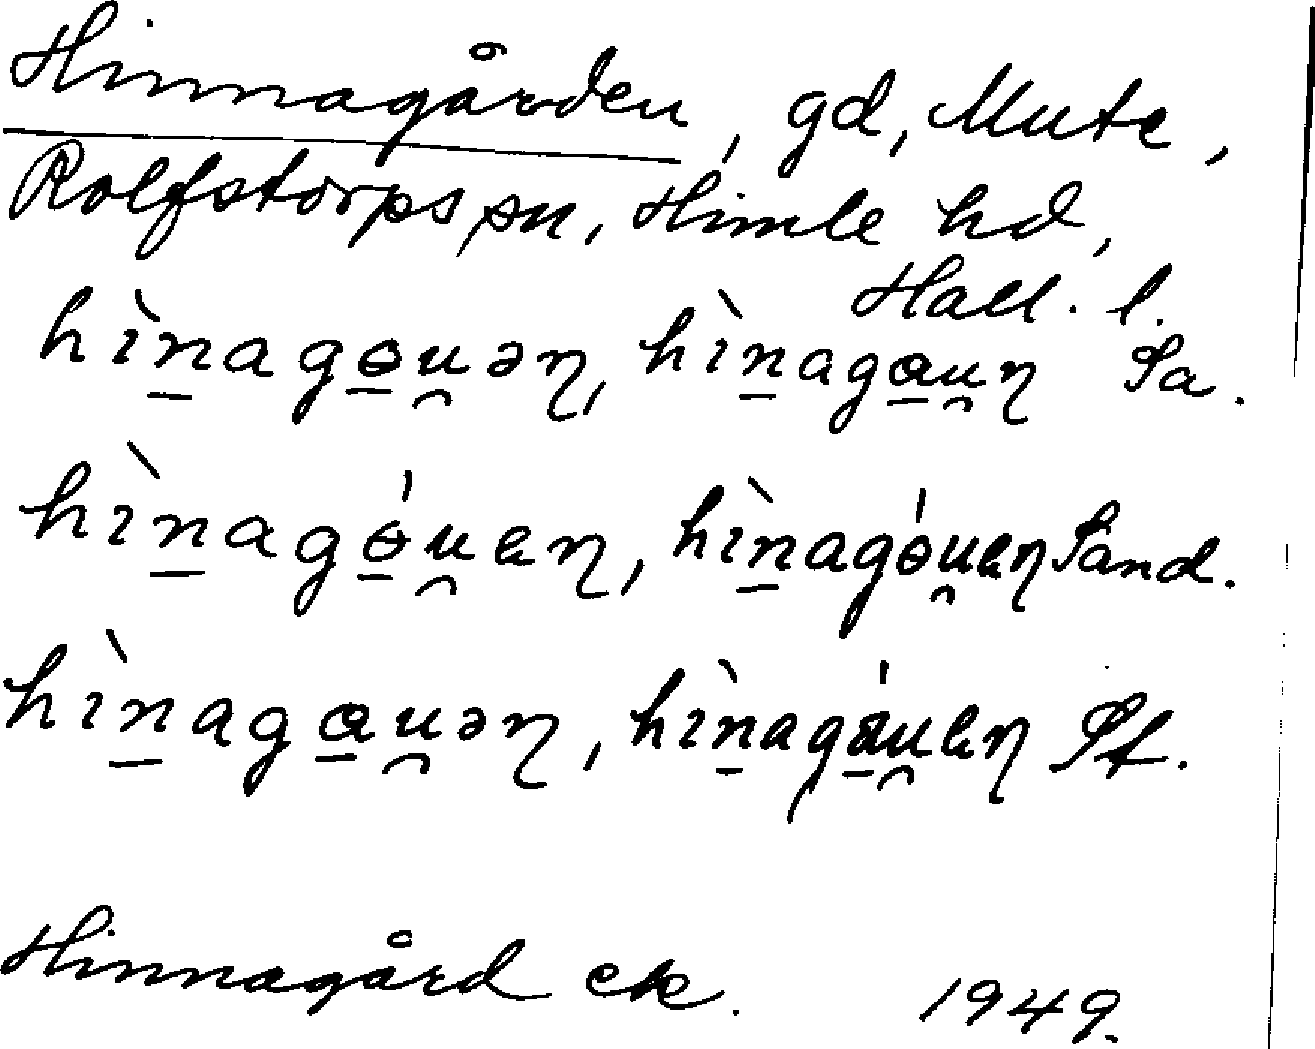 Hinnagården, gd, Mute,
Rolfstorps sn, Himle hd,
Hall. l.
hìn̲agɵ̲u̯əɳ, hìn̲agɑ̲u̯ɳ Sa.
hìn̲agɵ̲́u̯ɐɳ, hìn̲agɵ́u̯ɐɳ Sand.
hìn̲agɑ̲u̯əɳ, hìn̲agɑ̲́u̯ɐɳ St.
Hinnagård ek. 1949.